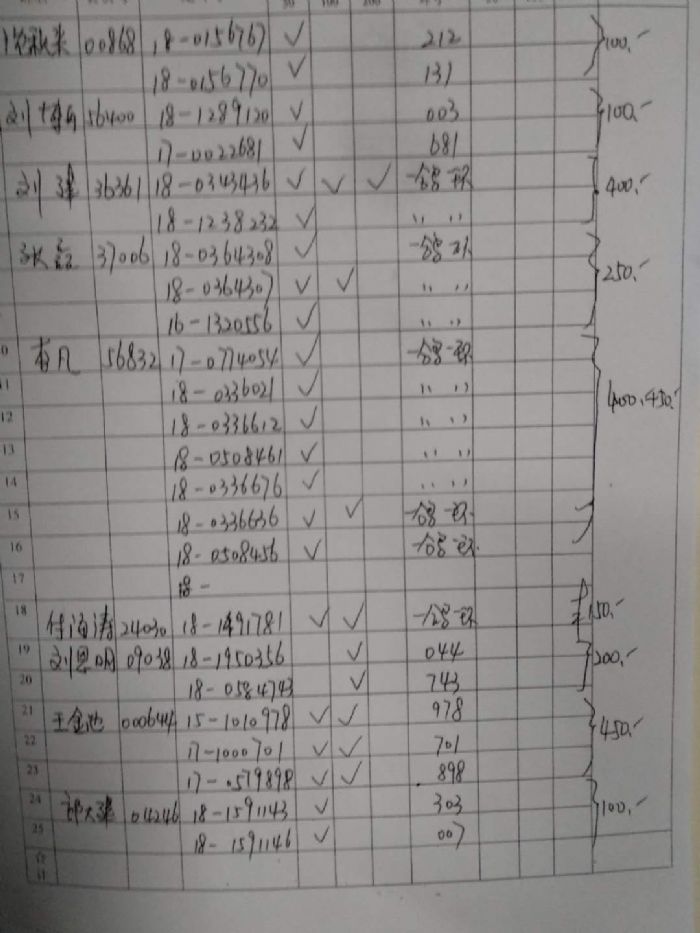 50 100 200
00868 18-0156767 ✓ 212 100.-
18-0156770 ✓ 131
刘博 56400 18-1289120 ✓ 003 100.-
17-0022681 ✓ 681
刘 36361 18-0343436 ✓ ✓ ✓ 400.-
18-1238232 ✓ 〃 〃
37006 18-0364308 ✓ 250.-
18-0364307 ✓ ✓ 〃 〃
16-1320556 ✓ 〃 〃
0 56832 17-0774054 ✓
1 18-0336021 ✓ 〃 〃 450.-
12 18-0336612 ✓ 〃 〃
13 18-0508461 ✓ 〃 〃
14 18-0336676 ✓ 〃 〃
15 18-0336636 ✓ ✓
16 18-0508456 ✓
17 18-
18 付海涛 24030 18-1491781 ✓ ✓ 150.-
19 刘恩明 09038 18-1950356 ✓ 044 200.-
20 18-0584743 ✓ 743
21 王金池 000644 15-1010978 ✓ ✓ 978
22 17-1000701 ✓ ✓ 701 450.-
23 17-0579898 ✓ ✓ 898
24 04246 18-1591143 ✓ 303 100.-
25 18-1591146 ✓ 007
合计